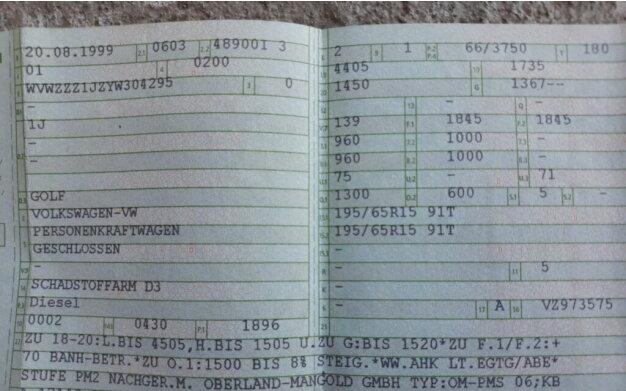 20.08.1999 2.1 0603 2.2 489001 3
01 4 0200
WVWZZZ1JZYW304295 3 0
-
1J
-
-
GOLF
VOLKSWAGEN-VW
PERSONENKRAFTWAGEN
GESCHLOSSEN
-
SCHADSTOFFARM D3
Diesel
0002 0430 P.1 1896
2 9 1 P.2 P.4 66/3750 T 180
4405 19 1735
1450 G 1367--
- 13 - Q -
139 F.1 1845 F.2 1845
960 7.2 1000 -
960 8.2 1000 -
75 U.2 - U.3 71
1300 O.2 600 S.1 5 S.2 -
195/65R15 91T
195/65R15 91T
-
- 11 5
-
- 17 A 16 VZ973575
ZU 18-20:L.BIS 4505,H.BIS 1505 U.ZU G:BIS 1520*ZU F.1/F.2:+
70 BANH-BETR.*ZU O.1:1500 BIS 8% STEIG.*WW.AHK LT.EGTG/ABE*
STUFE PM2 NACHGER.M. OBERLAND-MANGOLD GMBH TYP:OM-PMS 06;KB